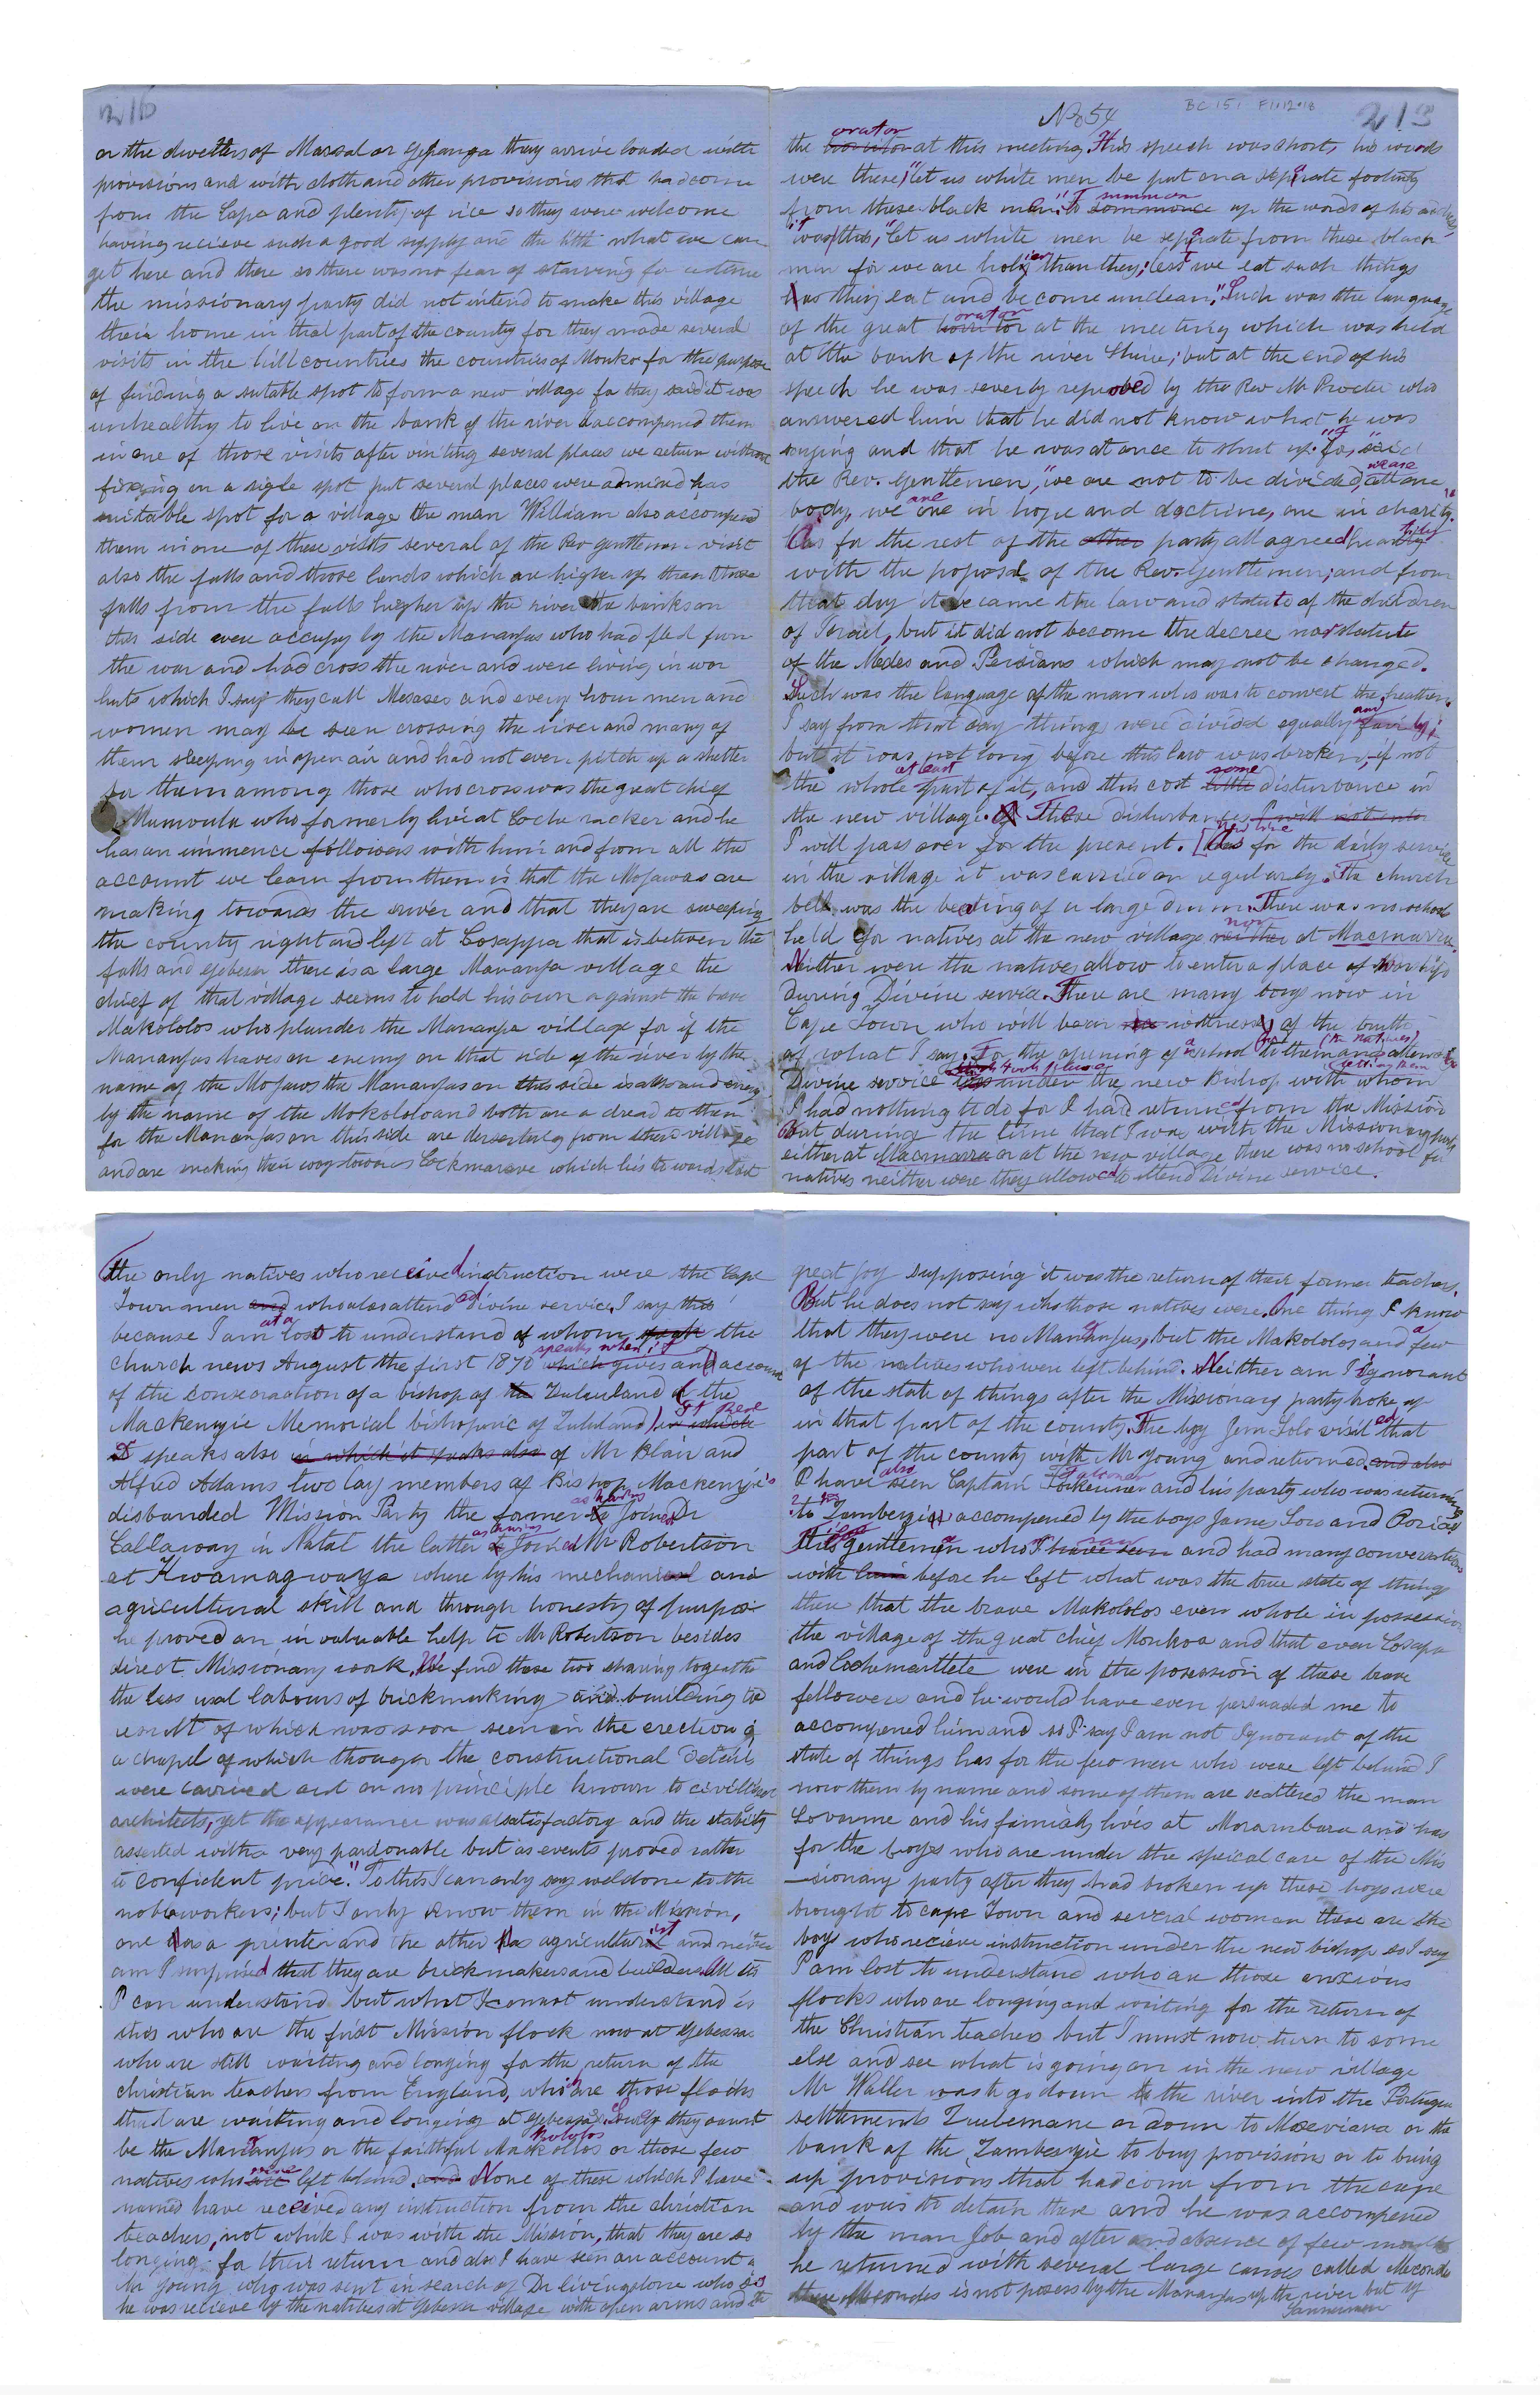 216
or the dwellers of Maraal or Gepanga they arrive loaded with
provisions and with cloth and other provisions that had come
from the Cape and plenty of rice so they were welcome
having recieve such a good supply and the little what we can
get here and there so there was no fear of starving for a time
the missionary party did not intend to make this village
their home in that part of the county for they made several
visits in the hill countries the countries of Monkor for the purpose
of finding a sutable spot to form a new village for they said it was
unhealthy to live on the bank of the river I accompened them
in one of those visits after viniting several places we return without
fixing on a sigle spot put several places were admired has
suitable spot for a village the man William also accompened
them in one of these visits several of the Rev gentlemen visit
also the falls and those lands which are higher up than those
falls from the falls higher up the river the banks on
this side were occupy by the Mananjas who had fled from
the war and had cross the river and were living in war
huts which I say they call Mesases and every hour men and
women may be seen crossing the river and many of
them sleeping in open air and had not even pitch up a shelter
for them among those who cross was the great chief
Mumoula who formerly live at Coche racker and he
has an immence followers with him and from all the
account we learn from them is that the Mojawas are
making towards the river and that they are sweeping
the county right and left at Cosappa that is between the
falls and Gebessa there is a large Mananja village the
chief of that village seems to hold his own against the brave
Makololos who plunder the Mananja village for if the
Mananjas haves an enemy on that side of the river by the
name of the Mojaws the Mananjas on this side is also and enemy
by the name of the Mokololo and both are a dread to them
for the Mananjas on this side are desserteng from there villages
and are making their way towards Cockmarave which lies towards East
No 54
BC 151 F1.12.18
213
the orator at this meeting. His speech was short, his words
were these, "let us white men be put on a seprate footing
from these black men". To summon up the words of his
it was this, "let us white men be seprate from these black
men for we are holier than they; lest we eat such things
as they eat and become unclean." Such was the language
of the great orator at the meeting which was held
at the bank of the river Shire; but at the end of his
speech he was severly reproved by the Rev Mr Procter who
answered him that he did not know what he was
saying and that he was at once to shut up. "for, said
the Rev. Gentlemen, "we are not to be divided, we are all one
body, we are one in hope and doctrine, one in charity."
As for the rest of the other party all agreed heartily
with the proposal of the Rev. Gentlemen; and from
that day it became the law and statute of the children
of Israel, but it did not become the decree nor statute
of the Medes and Persians which may not be changed.
Such was the language of the man who was to convert the heathen.
I say from that day things were divided equally and fairly;
but it was not long before this law was broken, if not
the whole at least part of it, and this cost some little disturbance in
the new village. These disturbances I will not into
I will pass over for the present. [new line As for the daily service
in the village it was carried on regularly. The church
bell was the beating of a large drum. There was no school
held for natives at the new village nor neither at Macmarra.
Neither were the natives allow to enter a place of Worship
during Divine service. There are many boys now in
Cape Town who will bear witness of the truth
of what I say. For the opening of a school to them (the natives)
Divine service took place under the new Bishop with whom
I had nothing to do for I had returned from the Mission
But during the time that I was with the Missionary party
either at Macmarra or at the new village there was no school for
natives neither were they allowed to attend Divine service.
the only natives who received instruction were the Cape
Town men and who also attended divine service. I say this
because I am at a lost to understand of whom speak the
church news August the first 1870 speaks when it which gives and account
of the consecration of a bishop of the Zululand of the
Mackenzie Memorial bishopric of Zululand in which
It speaks also in which it speaks also of Mr Blair and
Alfred Adams two lay members of Bishop Mackenzie's
disbanded Mission Party the former as having to Joined Dr
Callaway in Natal the latter as having to Joined Mr Robertson
at Kwamagwaza where by his mechanical and
agricultural skill and through honesty of purpose
he proved an invaluable help to Mr Robertson besides
direct Missionary work. We find these two sharing together
the less usal labours of brickmaking and building the
result of which was soon seen in the erection of
a chapel of which though the constructional Detail
were carried out on no principle known to civilised
architects, yet the appearance was a satisfactory and the stability
asserted with a very pardonable but as events proved rather
to confident price." To this I can only say weldone to the
noble workers; but I only know them in the Mission,
one as a printer and the other as agriculturist and neither
am I surprised that they are brickmakers and builders. All this
I can understand but what I cannot understand is
this who are the first Mission flock now at Gebessa
who are still waiting and longing for the return of the
christian teachers from England, who are those flocks
that are waiting and longing at Gebessa? Surely they cannot
be the Mananjas or the faithful Makololos or those few
natives who were left behind. and None of these which I have
named have received any instruction from the christian
teachers, not while I was with the Mission, that they are so
longing for their return and also I have seen an account of
Mr Young who was sent in search of Dr Livingstone who says
he was recieve by the natives at Gebessa village with open arms and with
great joy supposing it was the return of their former teachers.
But he does not say who those natives were. One thing I know
that they were no Mananjas, but the Makololos and a few
of the natives who were left behind. Neither am I ignorant
of the state of things after the Missionary party broke up
in that part of the county. The boy Jem Solo visited that
part of the county with Mr Young and returned. and also
I have also seen Captain Faulkner and his party who was returning
to Zambezi accompened by the boys James Sow and
This gentleman who I have seen and had many conversations
with him before he left what was the true state of things
there that the brave Makololos even whole in possession
the village of the great chief Monkoa and that even Cosapa
and Cochemarttete were in the posession of these brave
fellowers and he would have even persuaded me to
accompened him and so I say I am not Ignorant of the
state of things has for the few men who were left behind I
now them by name and some of them are scattered the man
Lovarme and his familly lives at Morambara and has
for the boys who are under the speical care of the Mis
-sionary party after they had broken up these boys were
brought to cape Town and several woman these are the
boys who recieve instruction under the new bishop so I say
I am lost to understand who are those anxious
flocks who are longing and waiting for the return of
the Christian teachers but I must now turn to some
else and see what is going on in the new village
Mr Waller was to go down to the river into the Portugue
settlements Quelemane or down to Moeviara or the
bank of the Zambezyie to buy provisions or to bring
up provisions that had come from the cape
and was to detain there and he was accompened
by the man Job and after and absence of few months
he returned with several large canoes called Meconde
these Mecondes is not posess by the Mananjas up the river but by